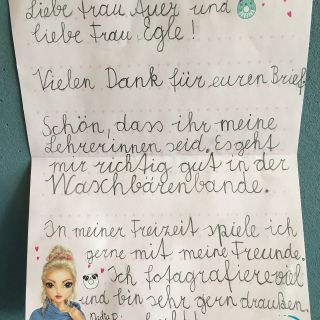 Liebe Frau Auer und
liebe Frau Egle!
Vielen Dank für euren Brief
Schön, dass ihr meine
Lehrerinnen seid. Es geht
mir richtig gut in der
Waschbärenbande.
In meiner Freizeit spiele ich
gerne mit meine Freunde.
Ich fotagrafiere viel
und bin sehr gern draußen.